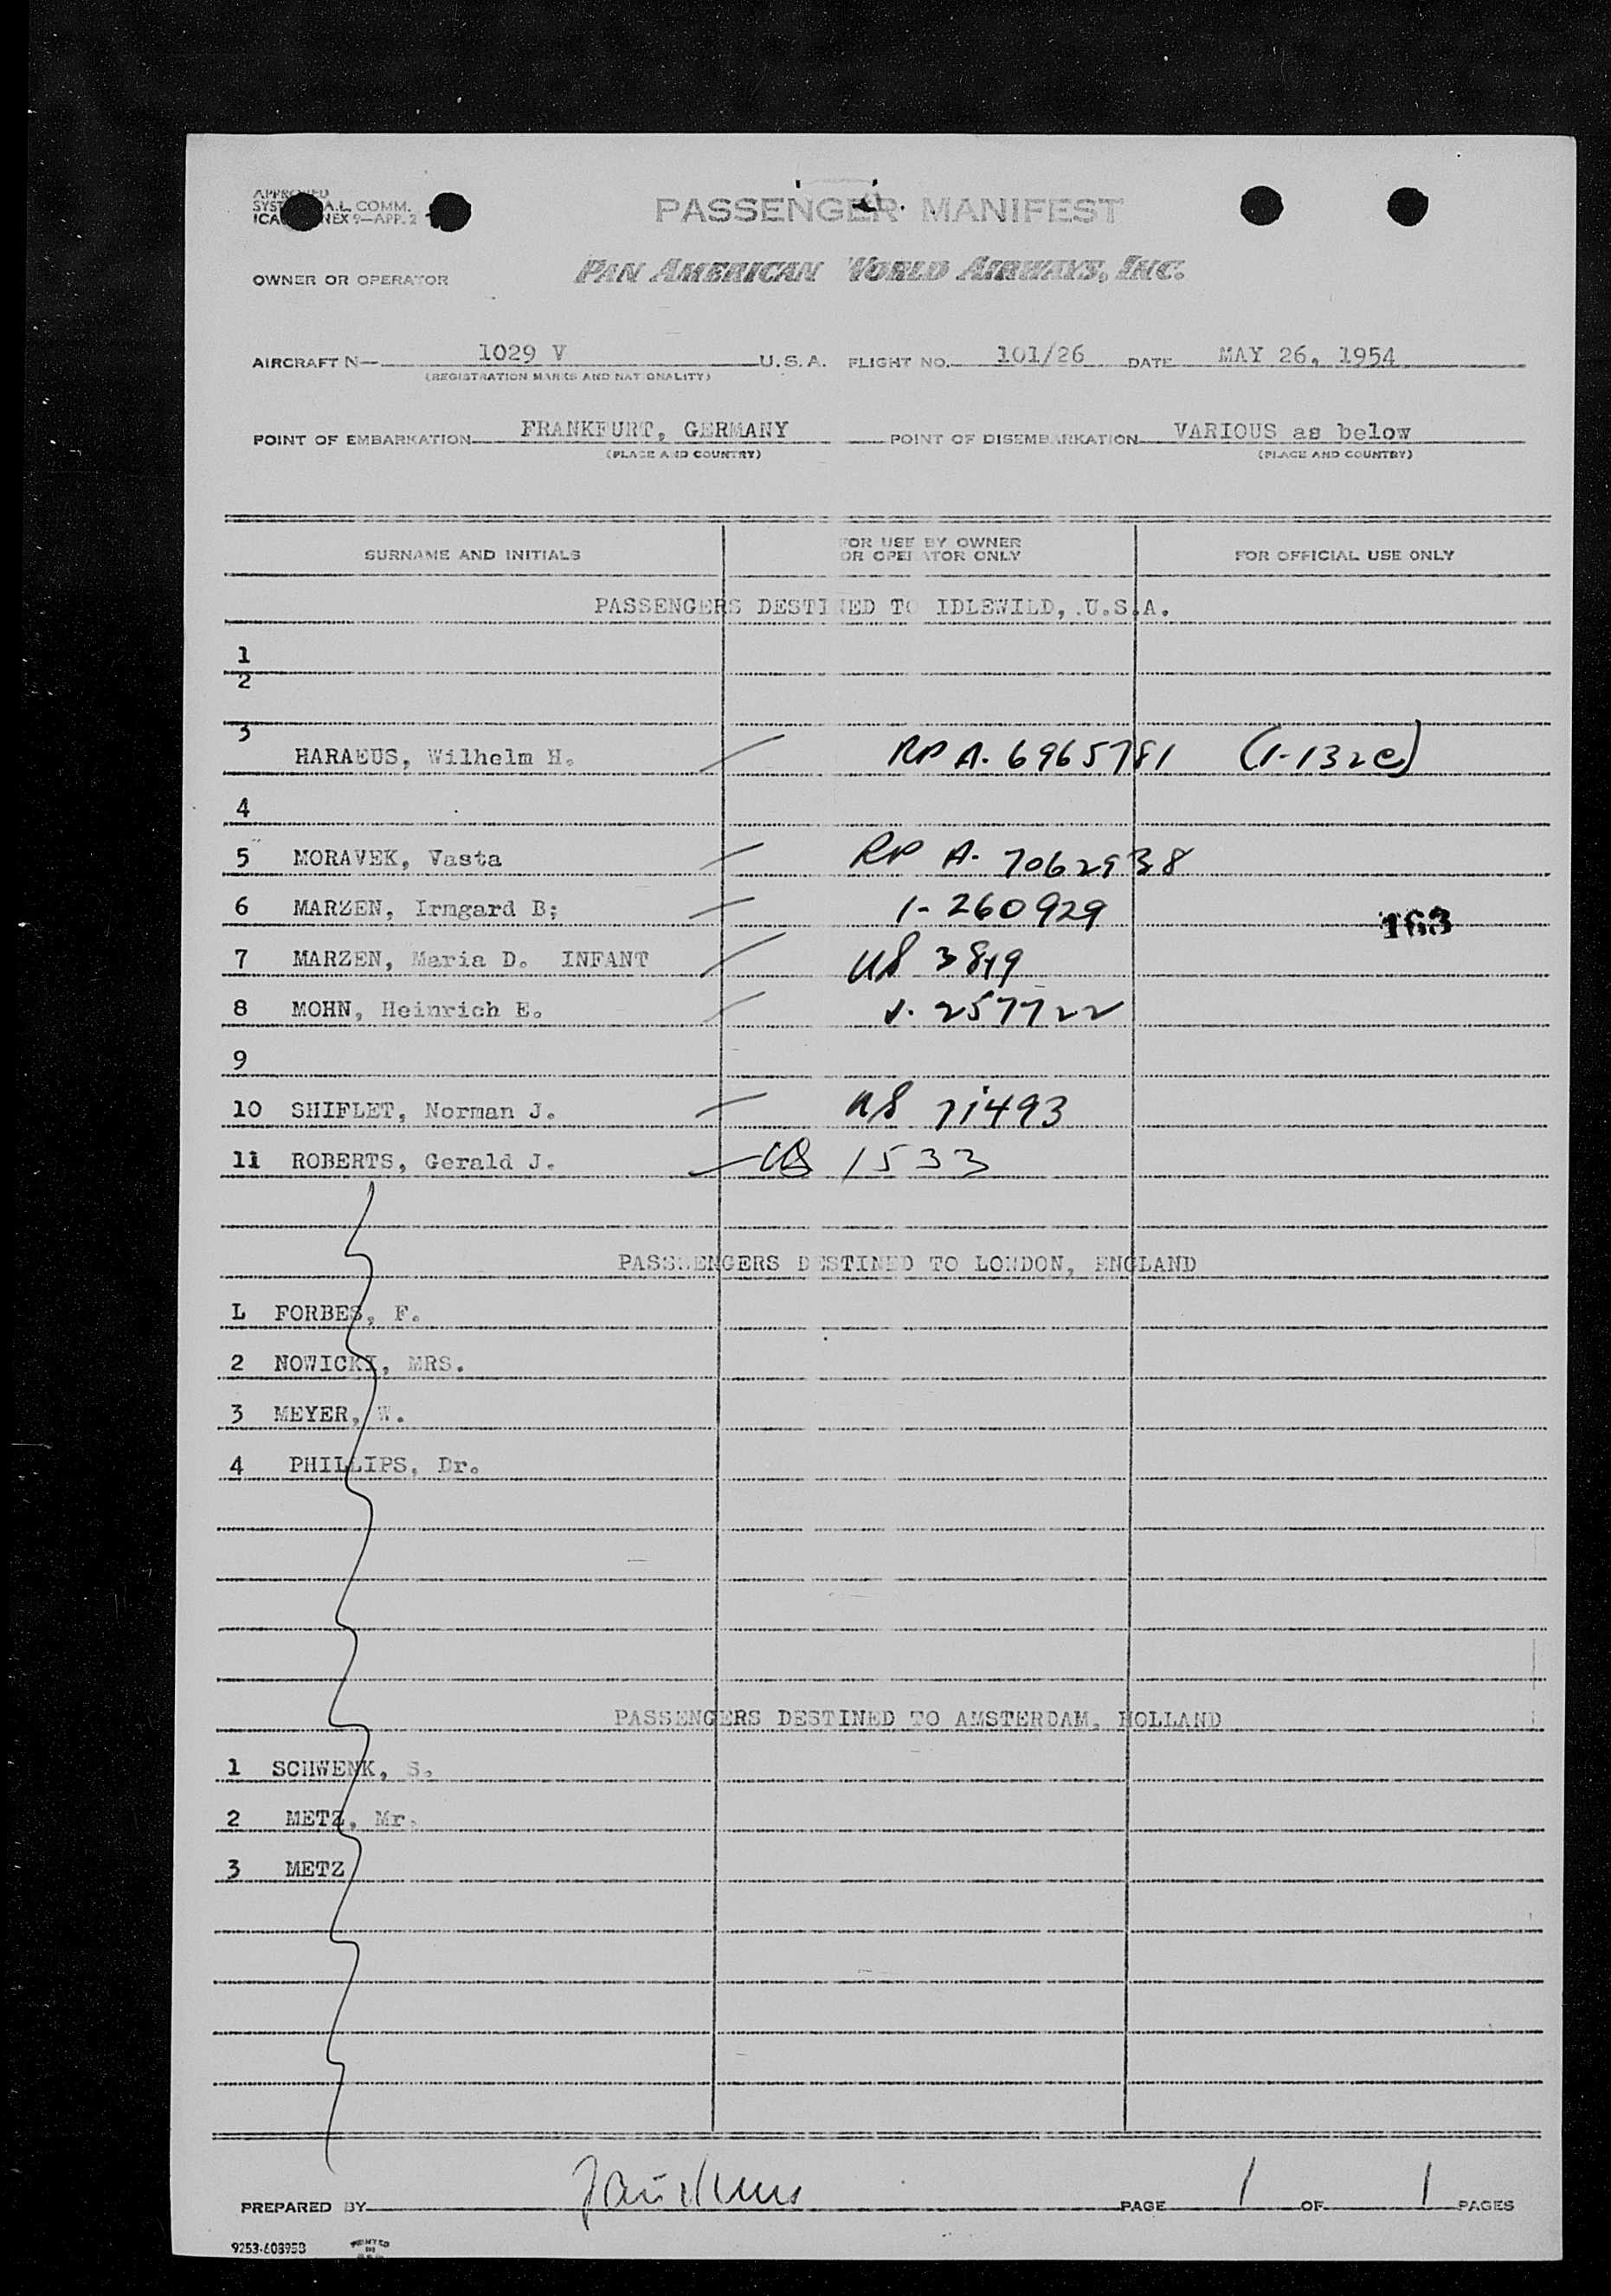 PASSENGER MANIFEST
OWNER OR OPERATOR PAN AMERICAN WORLD AIRWAYS, INC.
AIRCRAFT N— 1029 V U.S.A. FLIGHT NO. 101/26 DATE MAY 26, 1954
(REGISTRATION MARKS AND NATIONALITY)
POINT OF EMBARKATION FRANKFURT, GERMANY POINT OF DISEMBARKATION VARIOUS as below
(PLACE AND COUNTRY) (PLACE AND COUNTRY)
SURNAME AND INITIALS FOR USE BY OWNER OR OPERATOR ONLY FOR OFFICIAL USE ONLY
PASSENGERS DESTINED TO IDLEWILD, U.S.A.
1
2
3
HARAEUS, Wilhelm H. RP A. 6965781 (1-132e)
4
5 MORAVEK, Vasta RP A. 7062938
6 MARZEN, Irmgard B; 1- 260929
163
7 MARZEN, Maria D. INFANT US 3819
8 MOHN, Heinrich E. 257722
9
10 SHIFLET, Norman J. US 71493
11 ROBERTS, Gerald J. US 1533
PASSENGERS DESTINED TO LONDON, ENGLAND
L FORBES, F.
2 NOWICKI, MRS.
3 MEYER, W.
4 PHILLIPS, Dr.
PASSENGERS DESTINED TO AMSTERDAM, HOLLAND
1 SCHWENK, S.
2 METZ, Mr.
3 METZ
PREPARED BY PAGE 1 OF 1 PAGES
9253-60395B